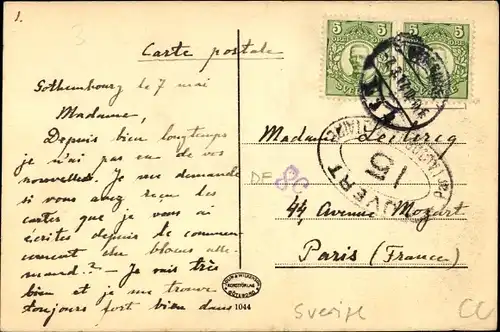 1.
3
Carte postale
Gothembourg le 7 mai
Madame,
Depuis bien longtemps
je n'ai pas eu de vos
nouvelles. Je me demande
si vous avez reçu les
cartes que je vous ai
écrites depuis le commen-
cement du blocus alle-
mand? - Je vais très
bien et je me trouve
toujours fort bien dans
1044
5 5
5 5
SVERIGE
Madame Leclercq
44, Avenue Mozart
Paris (France)
OUVERT
PAR L'AUTORITÉ MILITAIRE
15
DE
86
Sverige
CC